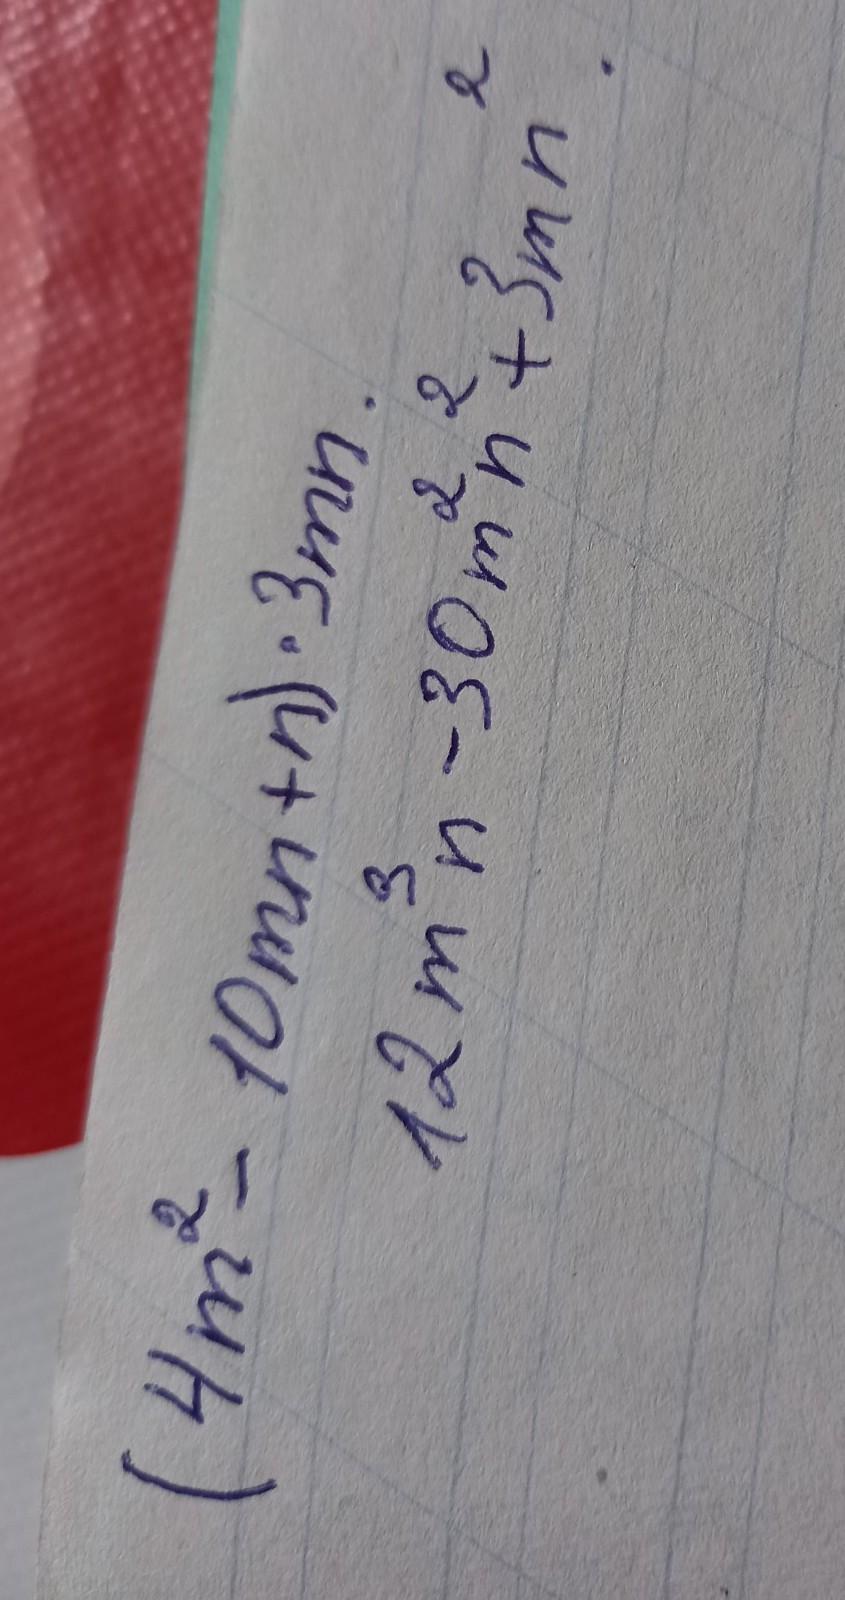 (4m² - 10mn + n) · 3mn.
12m³n - 30m²n² + 3mn².